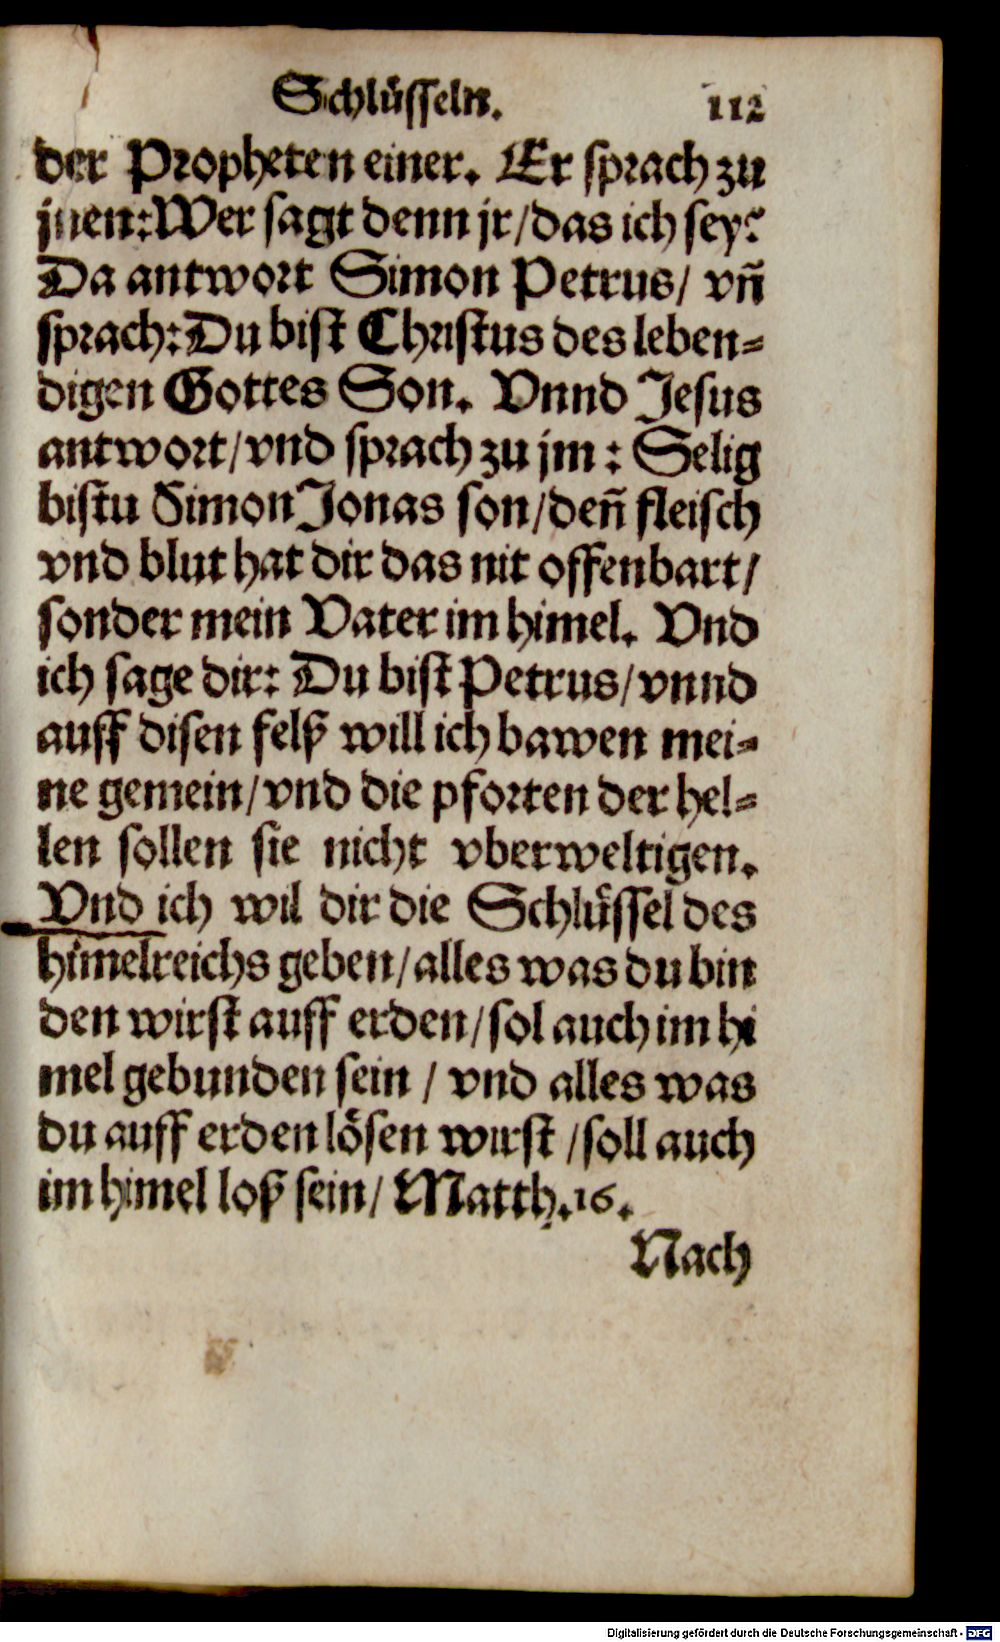 Schlüsseln. 112
der Propheten einer. Er sprach zu
jnen: Wer sagt denn jr/ das ich sey?
Da antwort Simon Petrus/ vñ
sprach: Du bist Christus des leben=
digen Gottes Son. Vnnd Jesus
antwort/ vnd sprach zu jm: Selig
bistu Simon Jonas son/ deñ fleisch
vnd blut hat dir das nit offenbart/
sonder mein Vater im himel. Vnd
ich sage dir: Du bist Petrus/ vnnd
auff disen felß will ich bawen mei=
ne gemein/ vnd die pforten der hel=
len sollen sie nicht vberweltigen.
Vnd ich wil dir die Schlüssel des
himelreichs geben/ alles was du bin
den wirst auff erden/ sol auch im hi
mel gebunden sein / vnd alles was
du auff erden lösen wirst / soll auch
im himel loß sein/ Matth. 16.
Nach
Digitalisierung gefördert durch die Deutsche Forschungsgemeinschaft - DFG